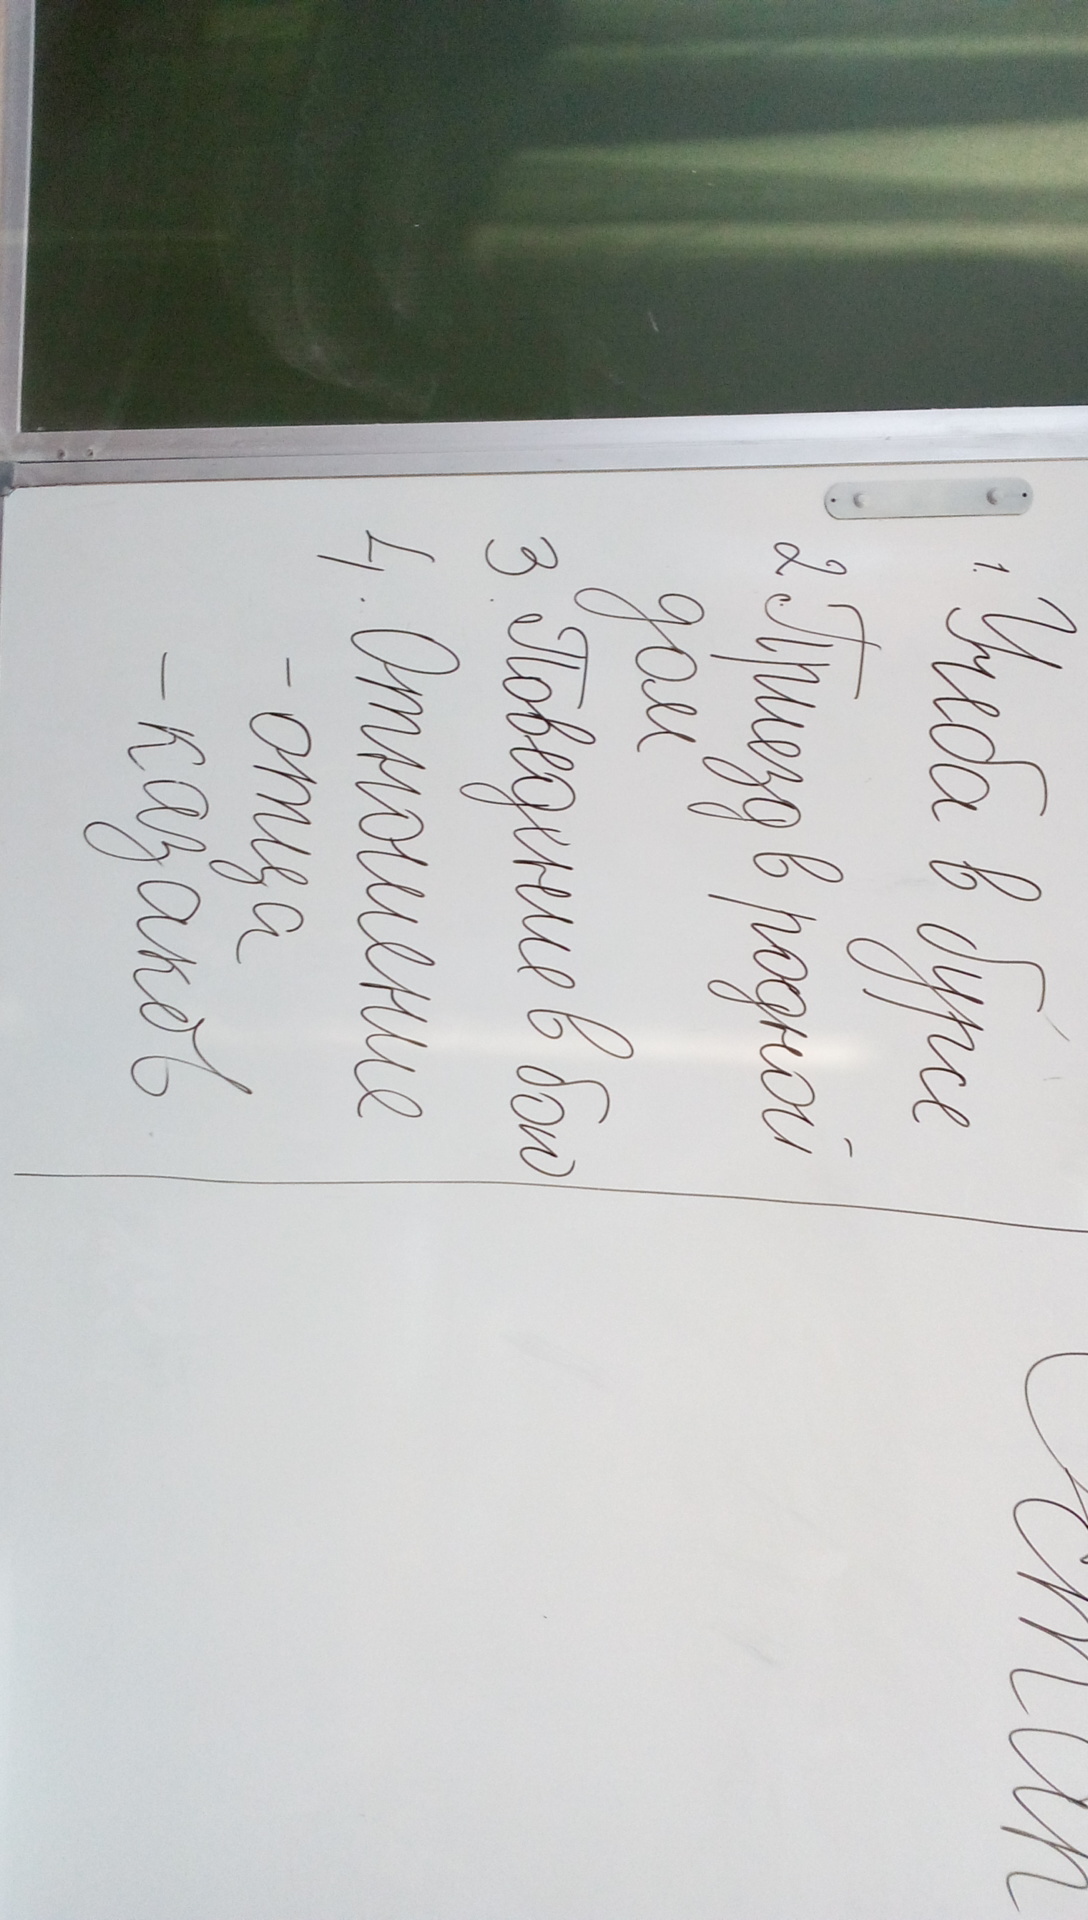 1. Учеба в бурсе
2. Приезд в родной
дом
3. Поведение в бою
4. Отношение
- отца
- казаков